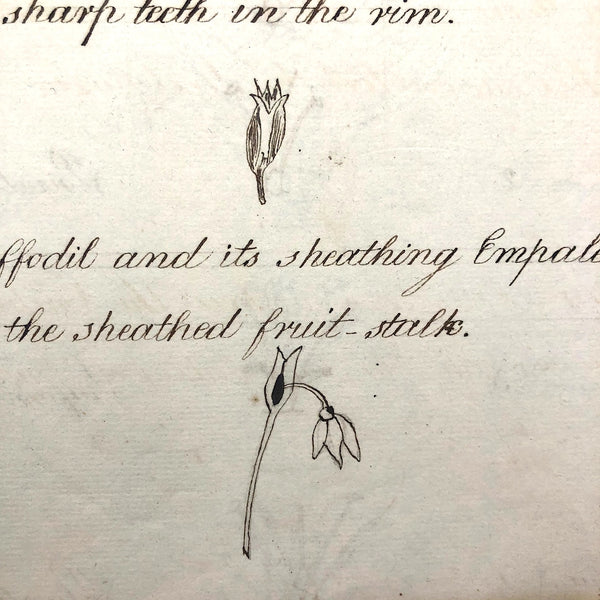 sharp teeth in the rim.
ffodil and its sheathing Empale
the sheathed fruit-stalk.